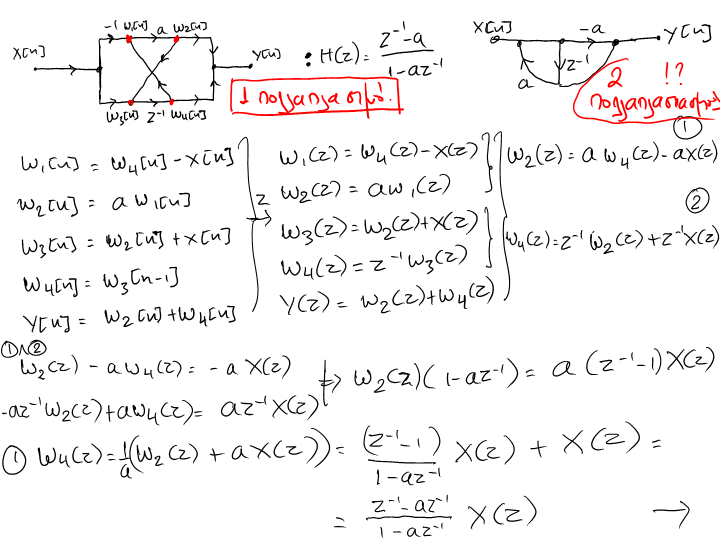 X[n] -1 w₁[n] a w₂[n] Y[n] w₃[n] z⁻¹ w₄[n]
: H(z) = (z⁻¹-a)/(1-az⁻¹)
X[n] -a Y[n] z⁻¹ a
1 πολλ/σμός!
2 !!
w₁[n] = w₄[n] - x[n]
w₂[n] = a w₁[n]
w₃[n] = w₂[n] + x[n]
w₄[n] = w₃[n-1]
Y[n] = w₂[n] + w₄[n]
z →
w₁(z) = w₄(z) - X(z)
w₂(z) = a w₁(z)
w₃(z) = w₂(z) + X(z)
w₄(z) = z⁻¹ w₃(z)
Y(z) = w₂(z) + w₄(z)
①
w₂(z) = a w₄(z) - aX(z)
②
w₄(z) = z⁻¹ w₂(z) + z⁻¹X(z)
①∧②
w₂(z) - a w₄(z) = -a X(z)
-az⁻¹w₂(z) + aw₄(z) = az⁻¹X(z)
⇒ w₂(z)(1-az⁻¹) = a (z⁻¹-1)X(z)
① w₄(z) = 1/a (w₂(z) + aX(z)) = (z⁻¹-1)/(1-az⁻¹) X(z) + X(z) =
= (z⁻¹-az⁻¹)/(1-az⁻¹) X(z) →